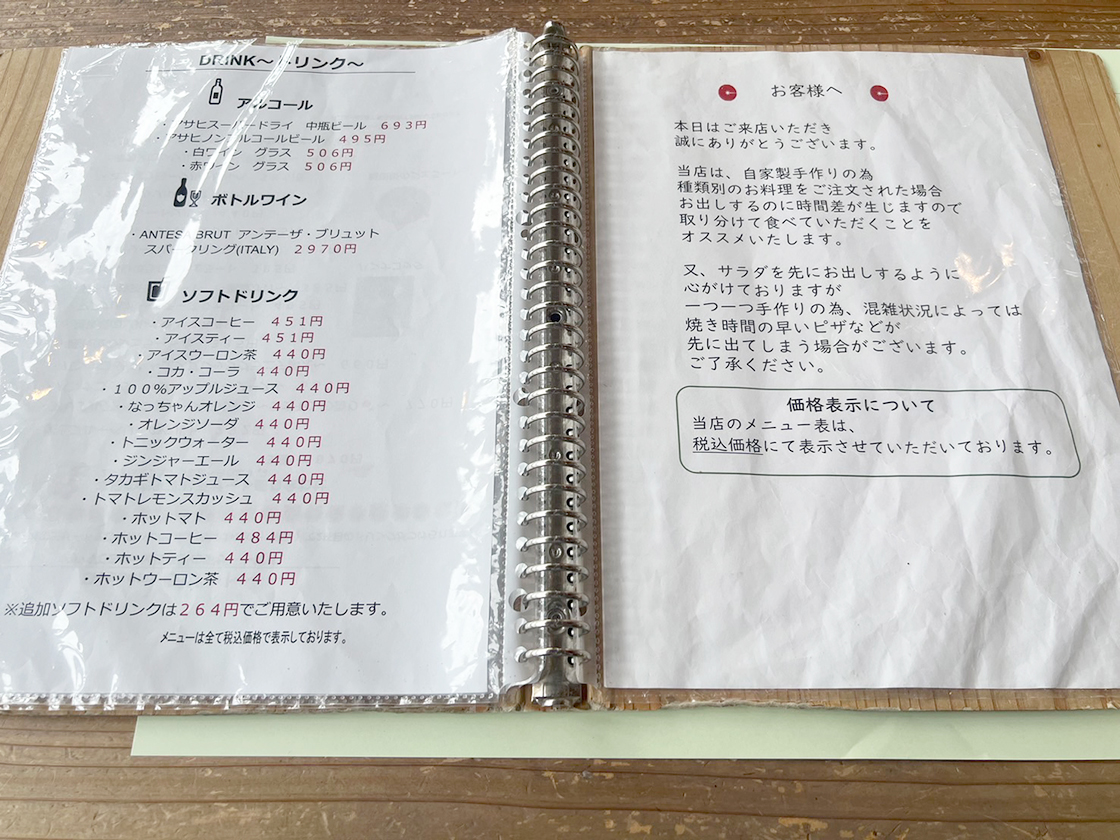 DRINK～ドリンク～
アルコール
・アサヒスーパードライ　中瓶ビール　６９３円
・アサヒノンアルコールビール　４９５円
・白ワイン　グラス　５０６円
・赤ワイン　グラス　５０６円
ボトルワイン
BRUT アンテーザ・ブリュット
スパークリング(ITALY)　２９７０円
ソフトドリンク
・アイスコーヒー　４５１円
・アイスティー　４５１円
・アイスウーロン茶　４４０円
・コカ・コーラ　４４０円
・１００％アップルジュース　４４０円
・なっちゃんオレンジ　４４０円
・オレンジソーダ　４４０円
・トニックウォーター　４４０円
・ジンジャーエール　４４０円
・タカギトマトジュース　４４０円
・トマトレモンスカッシュ　４４０円
・ホットマト　４４０円
・ホットコーヒー　４８４円
・ホットティー　４４０円
・ホットウーロン茶　４４０円
※追加ソフトドリンクは２６４円でご用意いたします。
メニューは全て税込価格で表示しております。
お客様へ
本日はご来店いただき
誠にありがとうございます。
当店は、自家製手作りの為
種類別のお料理をご注文された場合
お出しするのに時間差が生じますので
取り分けて食べていただくことを
オススメいたします。
又、サラダを先にお出しするように
心がけておりますが
一つ一つ手作りの為、混雑状況によっては
焼き時間の早いピザなどが
先に出てしまう場合がございます。
ご了承ください。
価格表示について
当店のメニュー表は、
税込価格にて表示させていただいております。